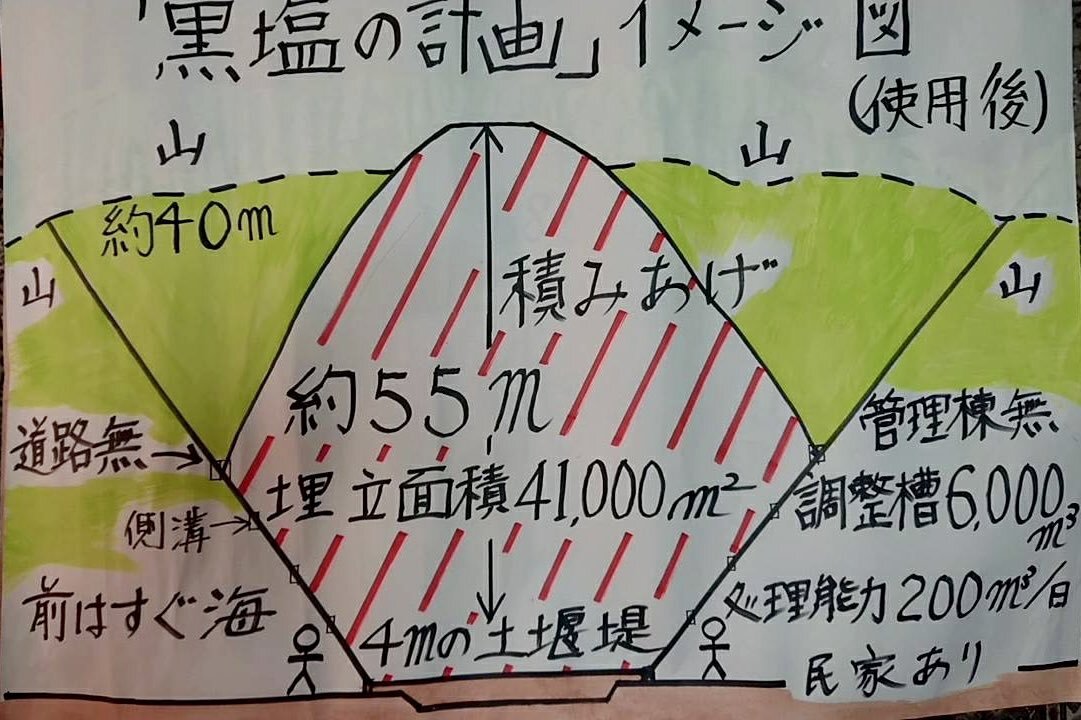 「黒塩の計画」イメージ図
(使用後)
山
山
約40m
山
山
積みあげ
約55m
道路無→
管理棟無
埋立面積41,000m²
調整槽6,000m³
側溝→
前はすぐ海
処理能力200m³/日
4mの土堰堤
民家あり